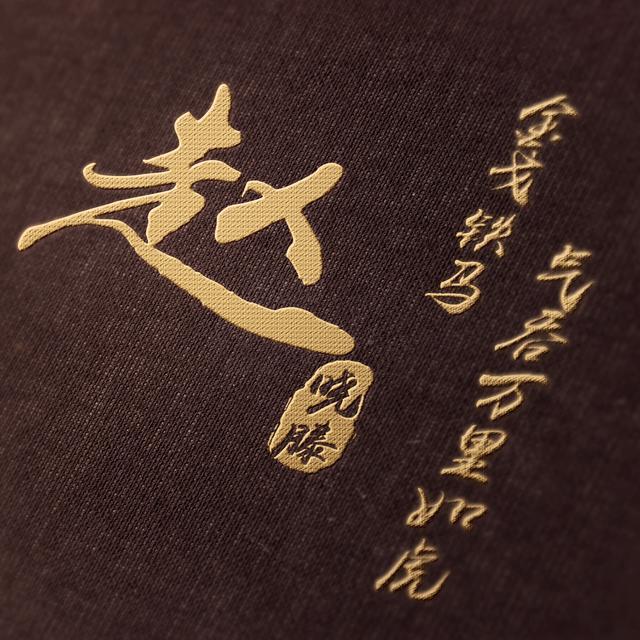 赵
晄
滕
金戈
铁马
气吞万里如虎